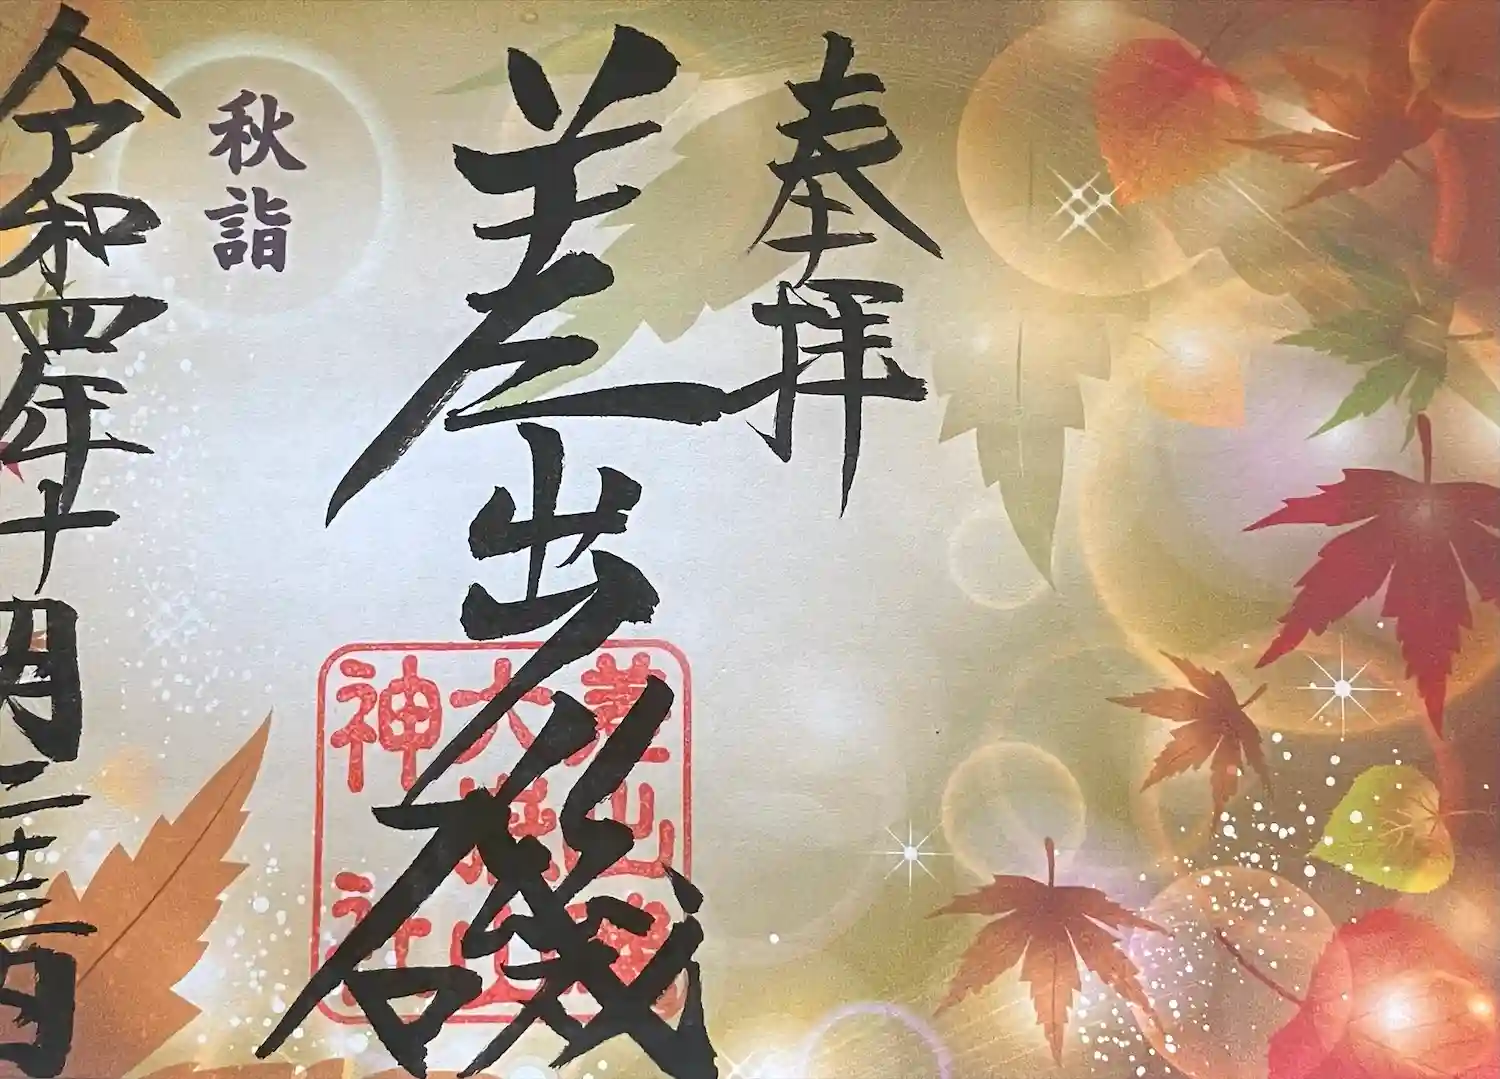 奉拝
差出磯
差出磯
大嶽山
神社
秋詣
令和四年十月二十三日